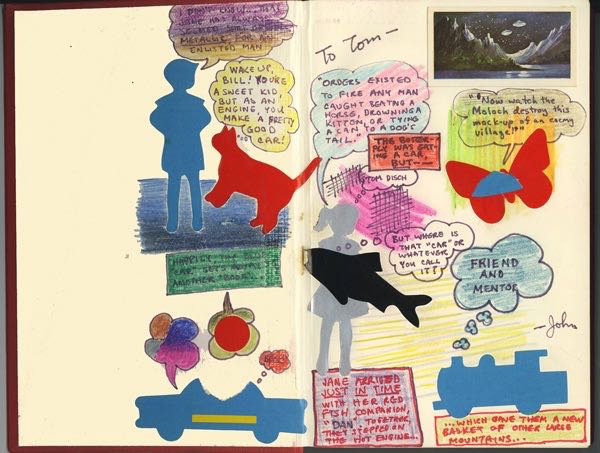 I DON'T KNOW... THAT
NAME HAS ALWAYS
SEEMED SORT OF
METALLIC FOR AN
ENLISTED MAN
WAKE UP,
BILL! YOU'RE
A SWEET KID,
BUT AS AN
ENGINE, YOU
MAKE A PRETTY
GOOD
CAR!
HAPPILY, THE BLUE
CAR GETS
ANOTHER
To Tom—
"ORDERS EXISTED
TO FIRE ANY MAN
CAUGHT BEATING A
HORSE, DROWNING A
KITTEN, OR TYING
A CAN TO A DOG'S
TAIL."
THE BUTTER-
FLY WAS EAT-
ING A CAR,
BUT——
TOM DISCH
BUT WHERE IS
THAT "CAR" OR
WHATEVER
YOU CALL
IT?
JANE ARRIVED
JUST IN TIME
WITH HER RED
FISH COMPANION,
"DAN" TOGETHER,
THEY STEPPED ON
THE HOT ENGINE...
"Now watch the
Moloch destroy this
mock-up of an enemy
village!"
FRIEND
AND
MENTOR
—John
...WHICH GAVE THEM A NEW
BASKET OF OTHER LARGE
MOUNTAINS...